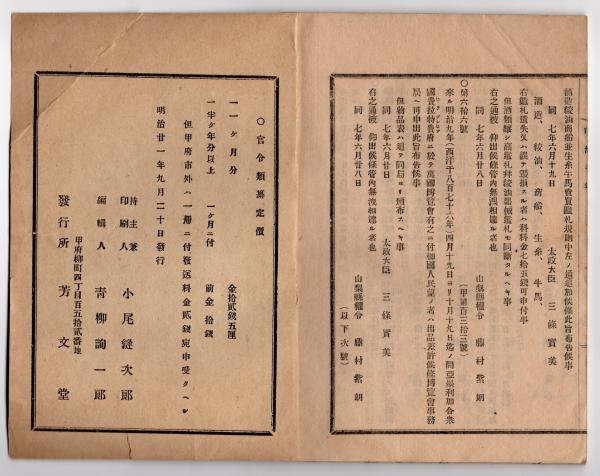 酒造絞油商船並生糸牛馬賣買鑑札規則中左ノ通追加候條此旨布告候事
同 七年六月十九日 太政大臣 三條實美
酒造、絞油、商船、生糸、牛馬、
右鑑札遺失又ハ誤テ毀損スル者ハ科料金七拾五錢可申付事
但酒類釀シ高鑑札并絞油器械鑑札モ同斷タルヘキ事
右之通被 仰出候條管内無洩相達ル者也
同 七年六月廿八日 山梨縣權令 藤村紫朗
○第六拾六號 (甲第百三拾三號)
來ル明治九年(西洋千八百七十六年)四月十九日ヨリ十月十九日迄ノ間亞墨利加合衆
國費拉特費府ニ於テ萬國博覽會有之ニ付御國人民望ノ者ハ出品差許候條博覽會事務
局ヘ可申出此旨布告候事
但物品表ハ追テ同局ヨリ頒布スヘキ事
同 七年六月廿日 太政大臣 三條實美
右之通被 仰出候條管内無洩相達ル者也
同 七年六月廿八日 山梨縣權令 藤村紫朗
(以下次號)
○官令類纂定價
一一ヶ月分 金拾貳錢五厘
一半ヶ年分以上 一ヶ月ニ付 前金拾錢
但甲府市外ハ一冊ニ付發送料金貳錢宛申受クヘシ
明治廿一年九月二十日發行
持主兼印刷人 小尾縫次郎
編輯人 青柳諭一郎
甲府柳町四丁目百五拾貳番地
發行所 芳文堂